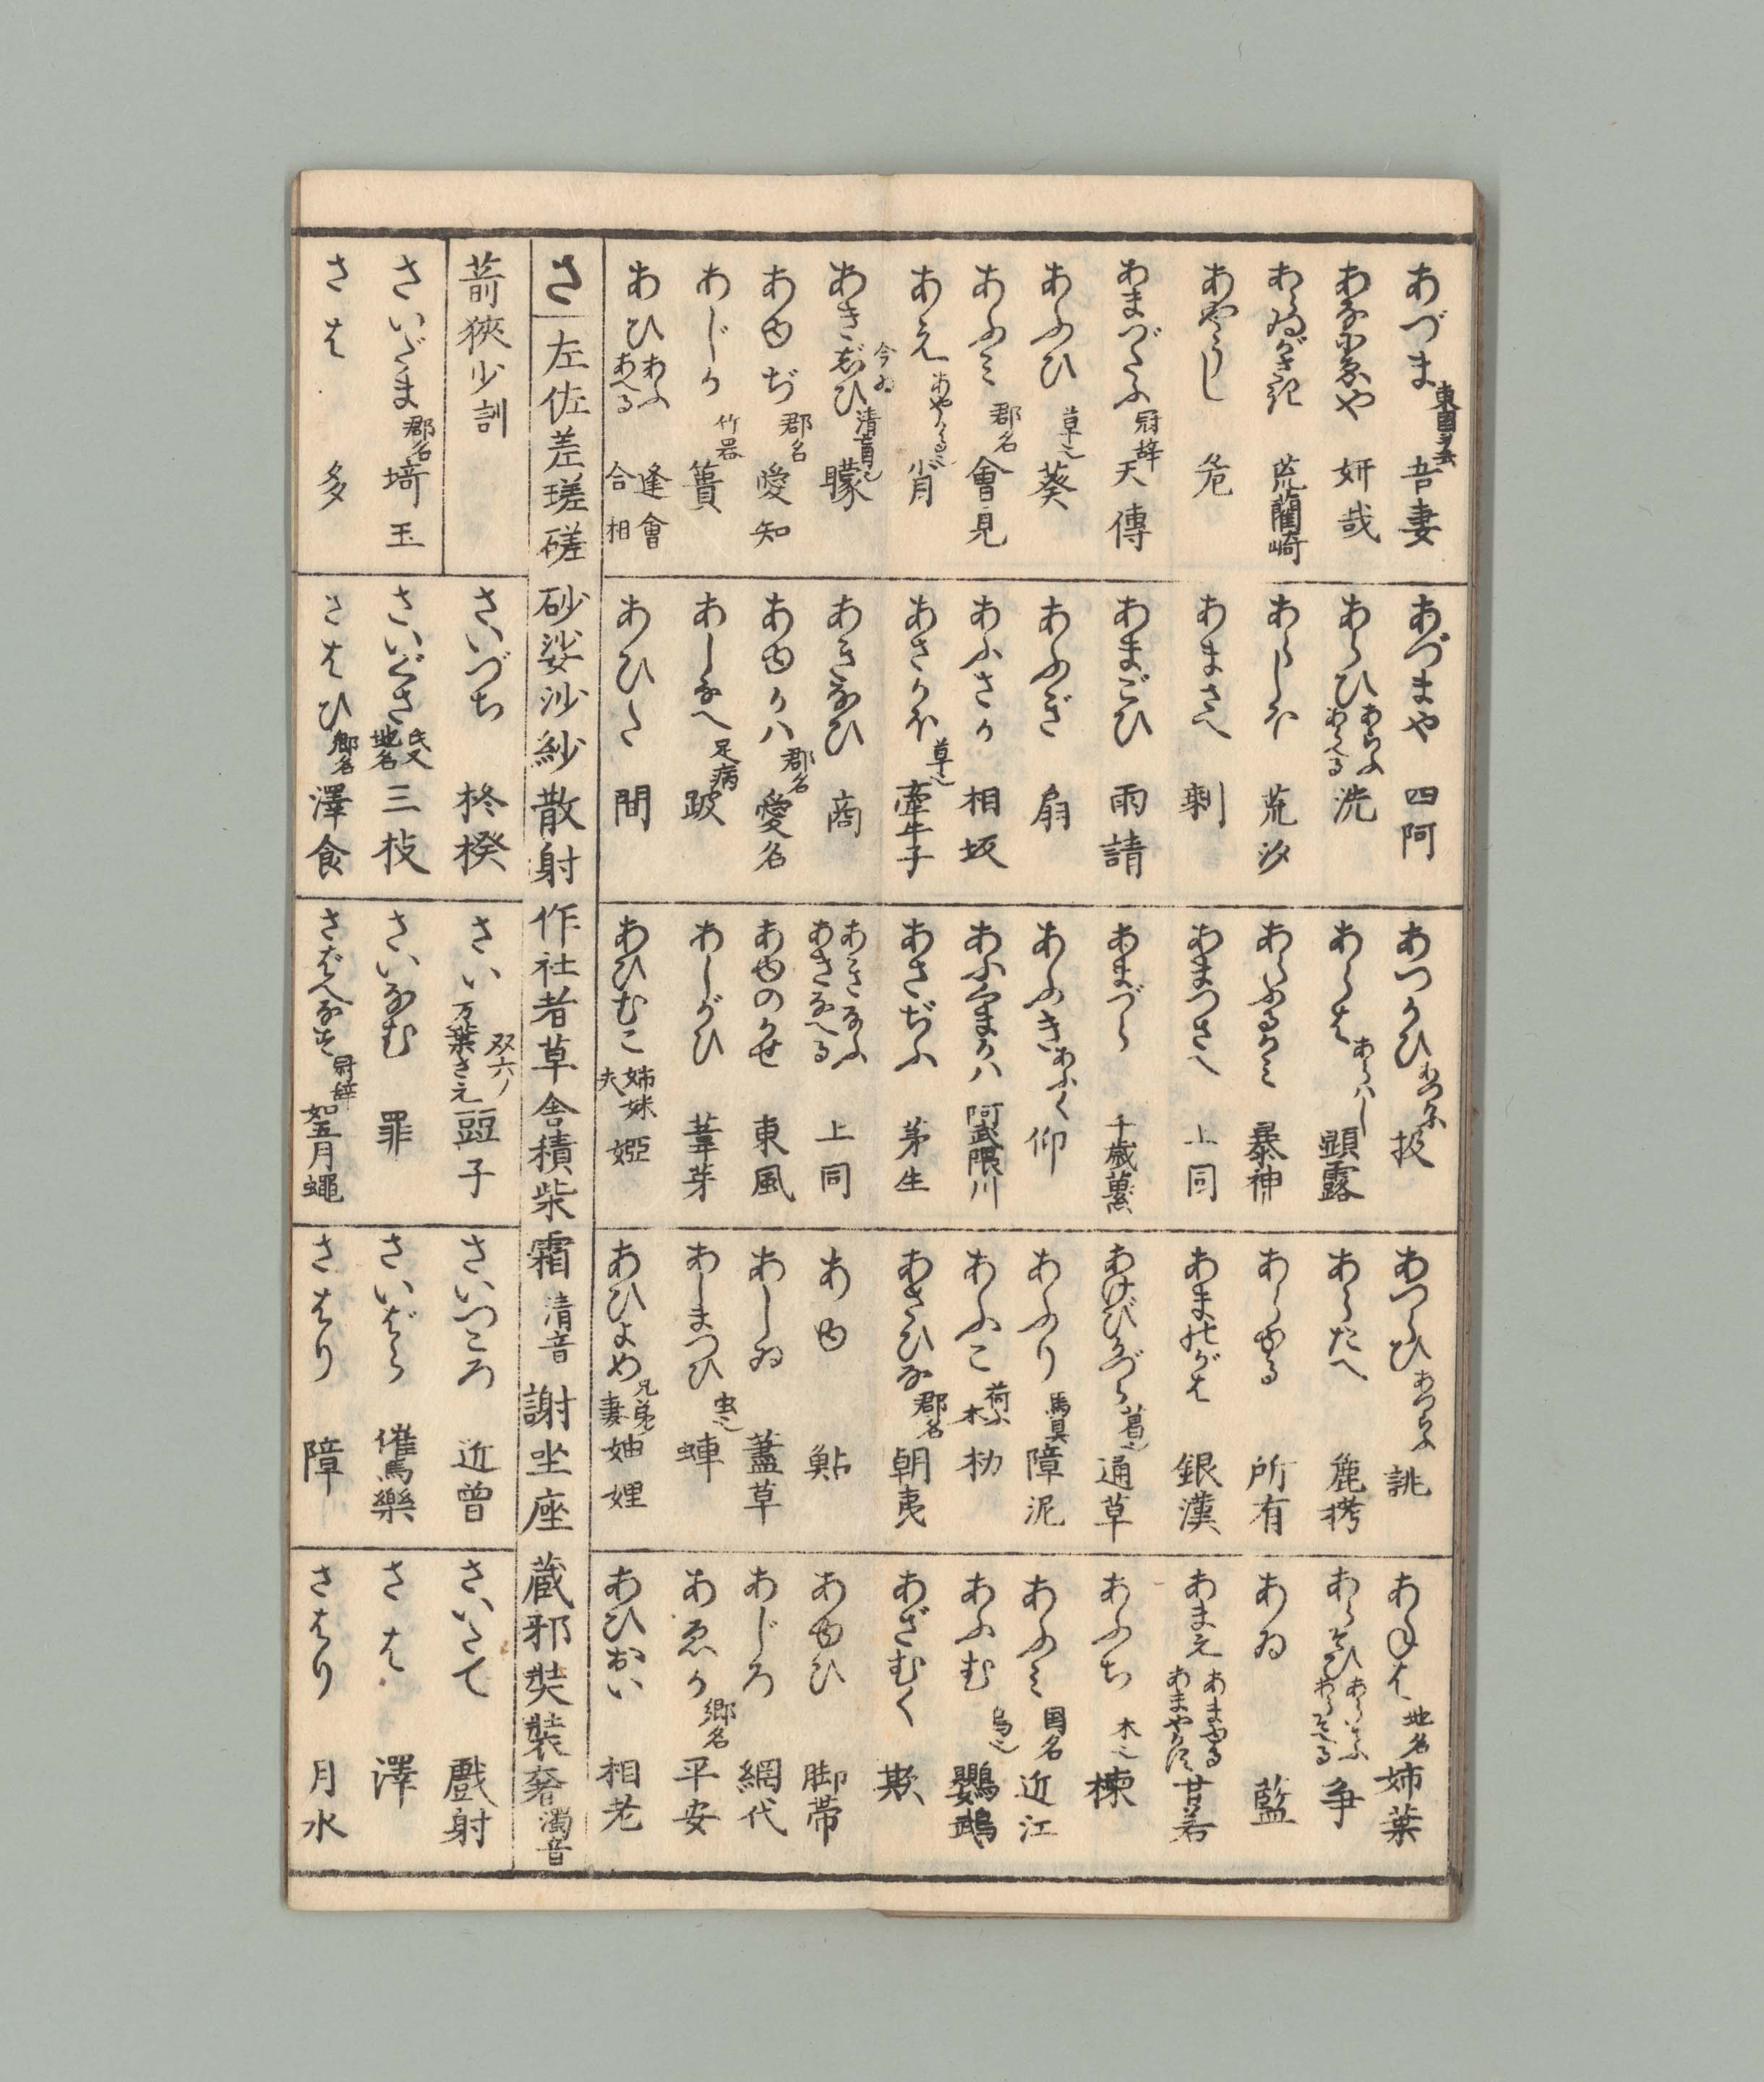 あづま 東国ヲ云 吾妻 あづまや 四阿 あつかひ あつかふ 扱 あつらひ あつらふ 誂 あねは 地名 姉葉
妍哉 あらひ あらふ あらへる 洗 あらは あらハし 顕露 あらたへ 麁栲 あらそひ あらそふ あらそへる 争
あらゐがさき 荒藺崎 あらしほ 荒汐 あらふるかミ 暴神 あらゆる 所有 あゐ 藍
あやうし 危 あまさへ 剰 あまつさへ 上同 あまのがは 銀漢 あまえ あまゆる あまやかす 甘若
あまづたふ 冠辞 天傳 あまごひ 雨請 あまづら 千歳虆 あけびかづら 葛也 通草 あふち 木也 楝
あふひ 草也 葵 あふぎ 扇 あふき あふく 仰 あふり 馬具 障泥 あふミ 国名 近江
あふミ 郡名 會見 あふさか 相坂 あふくまかハ 阿武隈川 あふこ 荷ふ木 朸 あふむ 鳥也 鸚鵡
あえ あやかる也 肖 あさかほ 草也 牽牛子 あさぢふ 茅生 あさひな 郡名 朝夷 あざむく 欺
あきじひ 清音也 矇 あきなひ 商 あきなふ あきなへる 上同 あゆ 鮎 あゆひ 脚帯
あゆぢ 郡名 愛知 あゆかハ 郡名 愛名 あゆのかせ 東風 あしゐ 藎草 あじろ 網代
あじか 竹器 簣 あしなへ 足病 跛 あしがひ 葦芽 あしまつひ 虫也 蛼 あゑか 郷名 平安
あひ あふ あへる 逢會合相 あひた 間 あひむこ 姉妹夫 婭 あひよめ 兄弟妻 妯娌 あひおい 相老
さ 左佐差瑳磋砂娑沙紗散射作社者草舎積柴霜 清音 謝坐座蔵邪奘装奢 濁音
葥狹少訓 さいづち 柊楑 さい 双六ノ 万葉さえ 頭子 さいつころ 近曽 さいたて 戯射
さいたま 郡名 埼玉 さいぐさ 氏又地名 三枝 さいなむ 罪 さいばら 催馬樂 さは 澤
さは 多 さはひ 郷名 澤食 さばへなす 冠辞 如五月蠅 さはり 障 さはり 月水